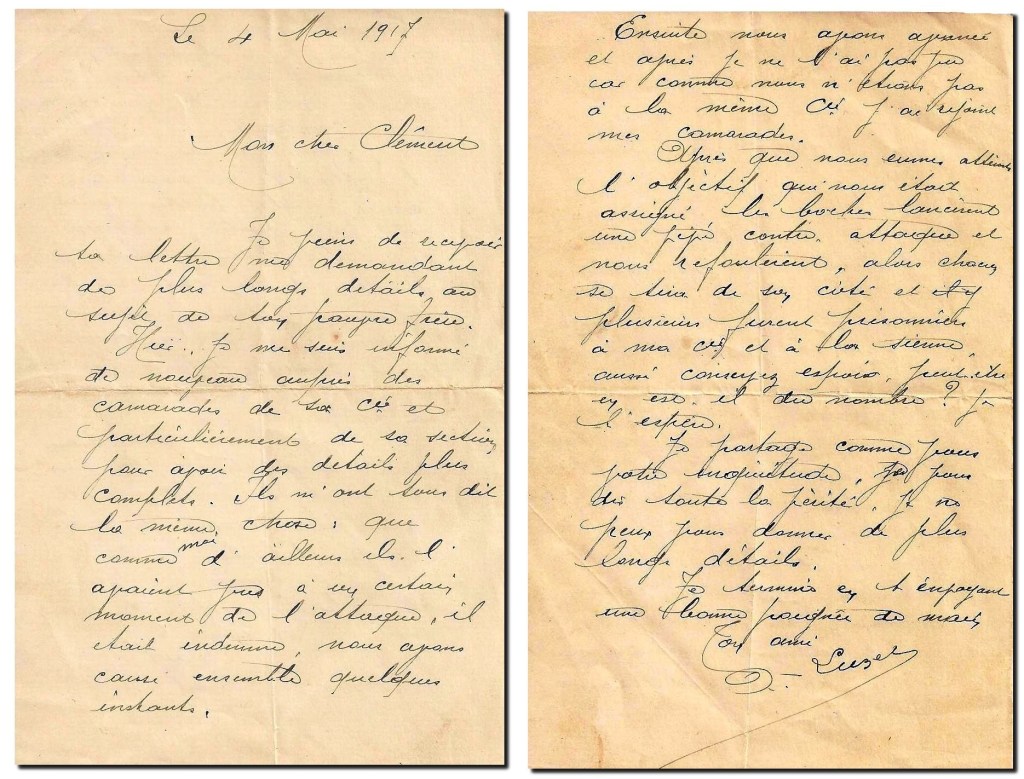 Le 4 Mai 1917
Mon cher Clément
Je viens de recevoir
ta lettre me demandant
de plus longs détails au
sujet de ton pauvre frère.
Hier, je me suis informé
de nouveau auprès des
camarades de sa Cie et
particulièrement de sa section
pour avoir des details plus
complets. Ils m'ont tous dit
la même chose : que
comme moi d'ailleurs ils l'
avaient vu à un certain
moment de l'attaque, il
était indemne, nous avons
causé ensemble quelques
instants.
Ensuite nous avons avancé
et après je ne l'ai pas vu
car comme nous n'étions pas
à la même Cie j'ai rejoint
mes camarades.
Après que nous eumes atteint
l'objectif qui nous était
assigné, les boches lancèrent
une contre-attaque et
nous refoulèrent, alors chacun
se tira de son coté et il y
plusieurs furent prisonniers
à ma Cie et à la sienne,
aussi conservez espoir, peut-être
en est-il du nombre ? Je
l'espère.
Je partage comme vous
votre inquiétude, je vous
dis toute la vérité. Je ne
peux vous donner de plus
longs détails.
Je termine en t'envoyant
une bonne poignée de main
Ton ami
Luzel